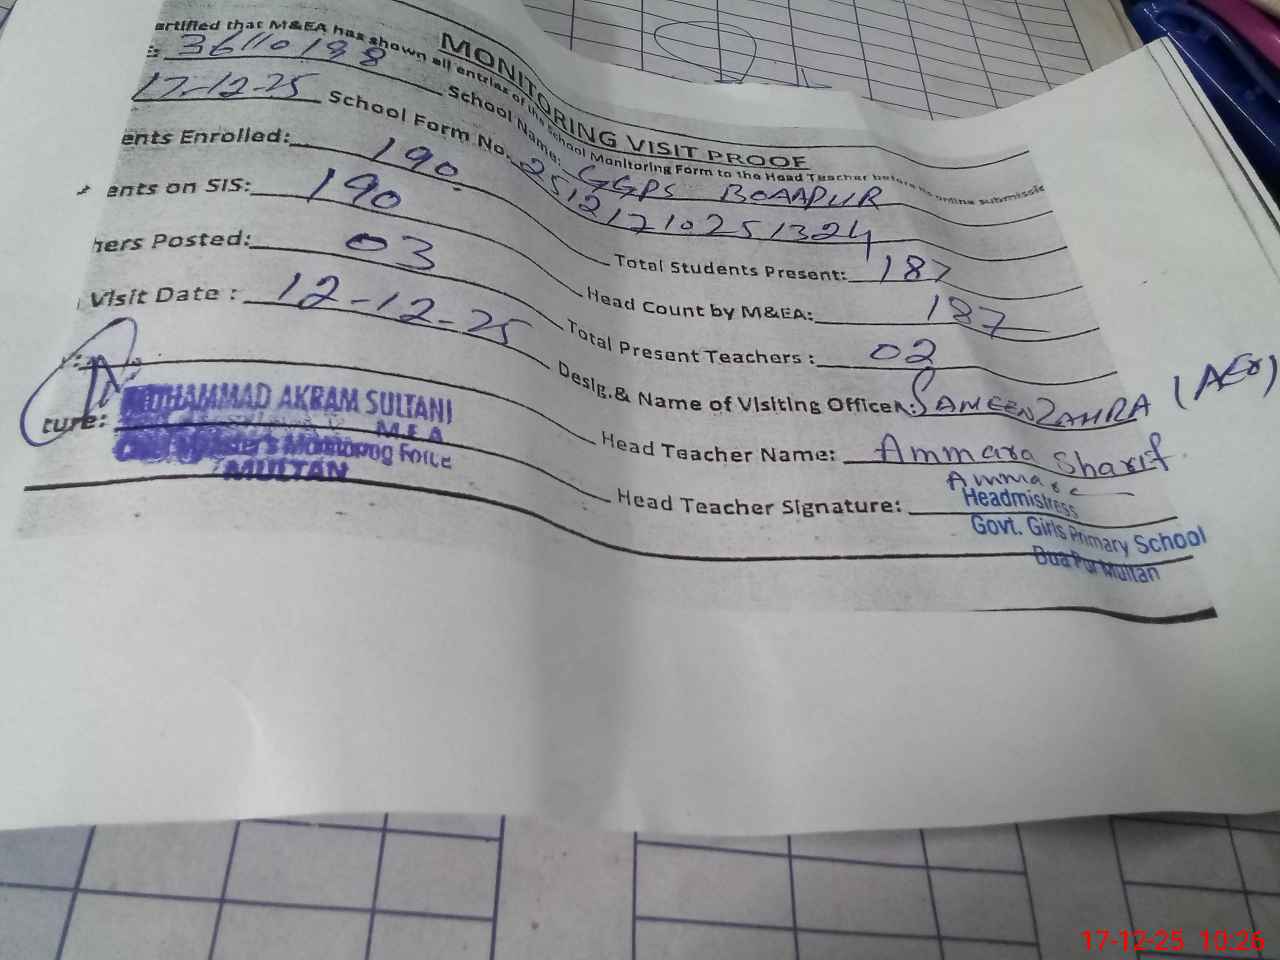 MONITORING VISIT PROOF
ertified that M&EA has shown all entries of the School Monitoring Form to the Head Teacher before its online submissio
: 36110198 School Name: GGPS BOAAPUR
17-12-25 School Form No. 25121710251324
ents Enrolled: 190 Total Students Present: 187
ents on SIS: 190 Head Count by M&EA: 187
hers Posted: 03 Total Present Teachers : 02
Visit Date : 12-12-25 Desig.& Name of Visiting Officer: SAMEEN ZAHRA (AEO)
Head Teacher Name: Ammara Sharif
ture: MUHAMMAD AKRAM SULTANI
M.E.A
Chief Minister's Monitoring Force
MULTAN
Head Teacher Signature: Ammara
Headmistress
Govt. Girls Primary School
Bua Pur Multan
17-12-25 10:26